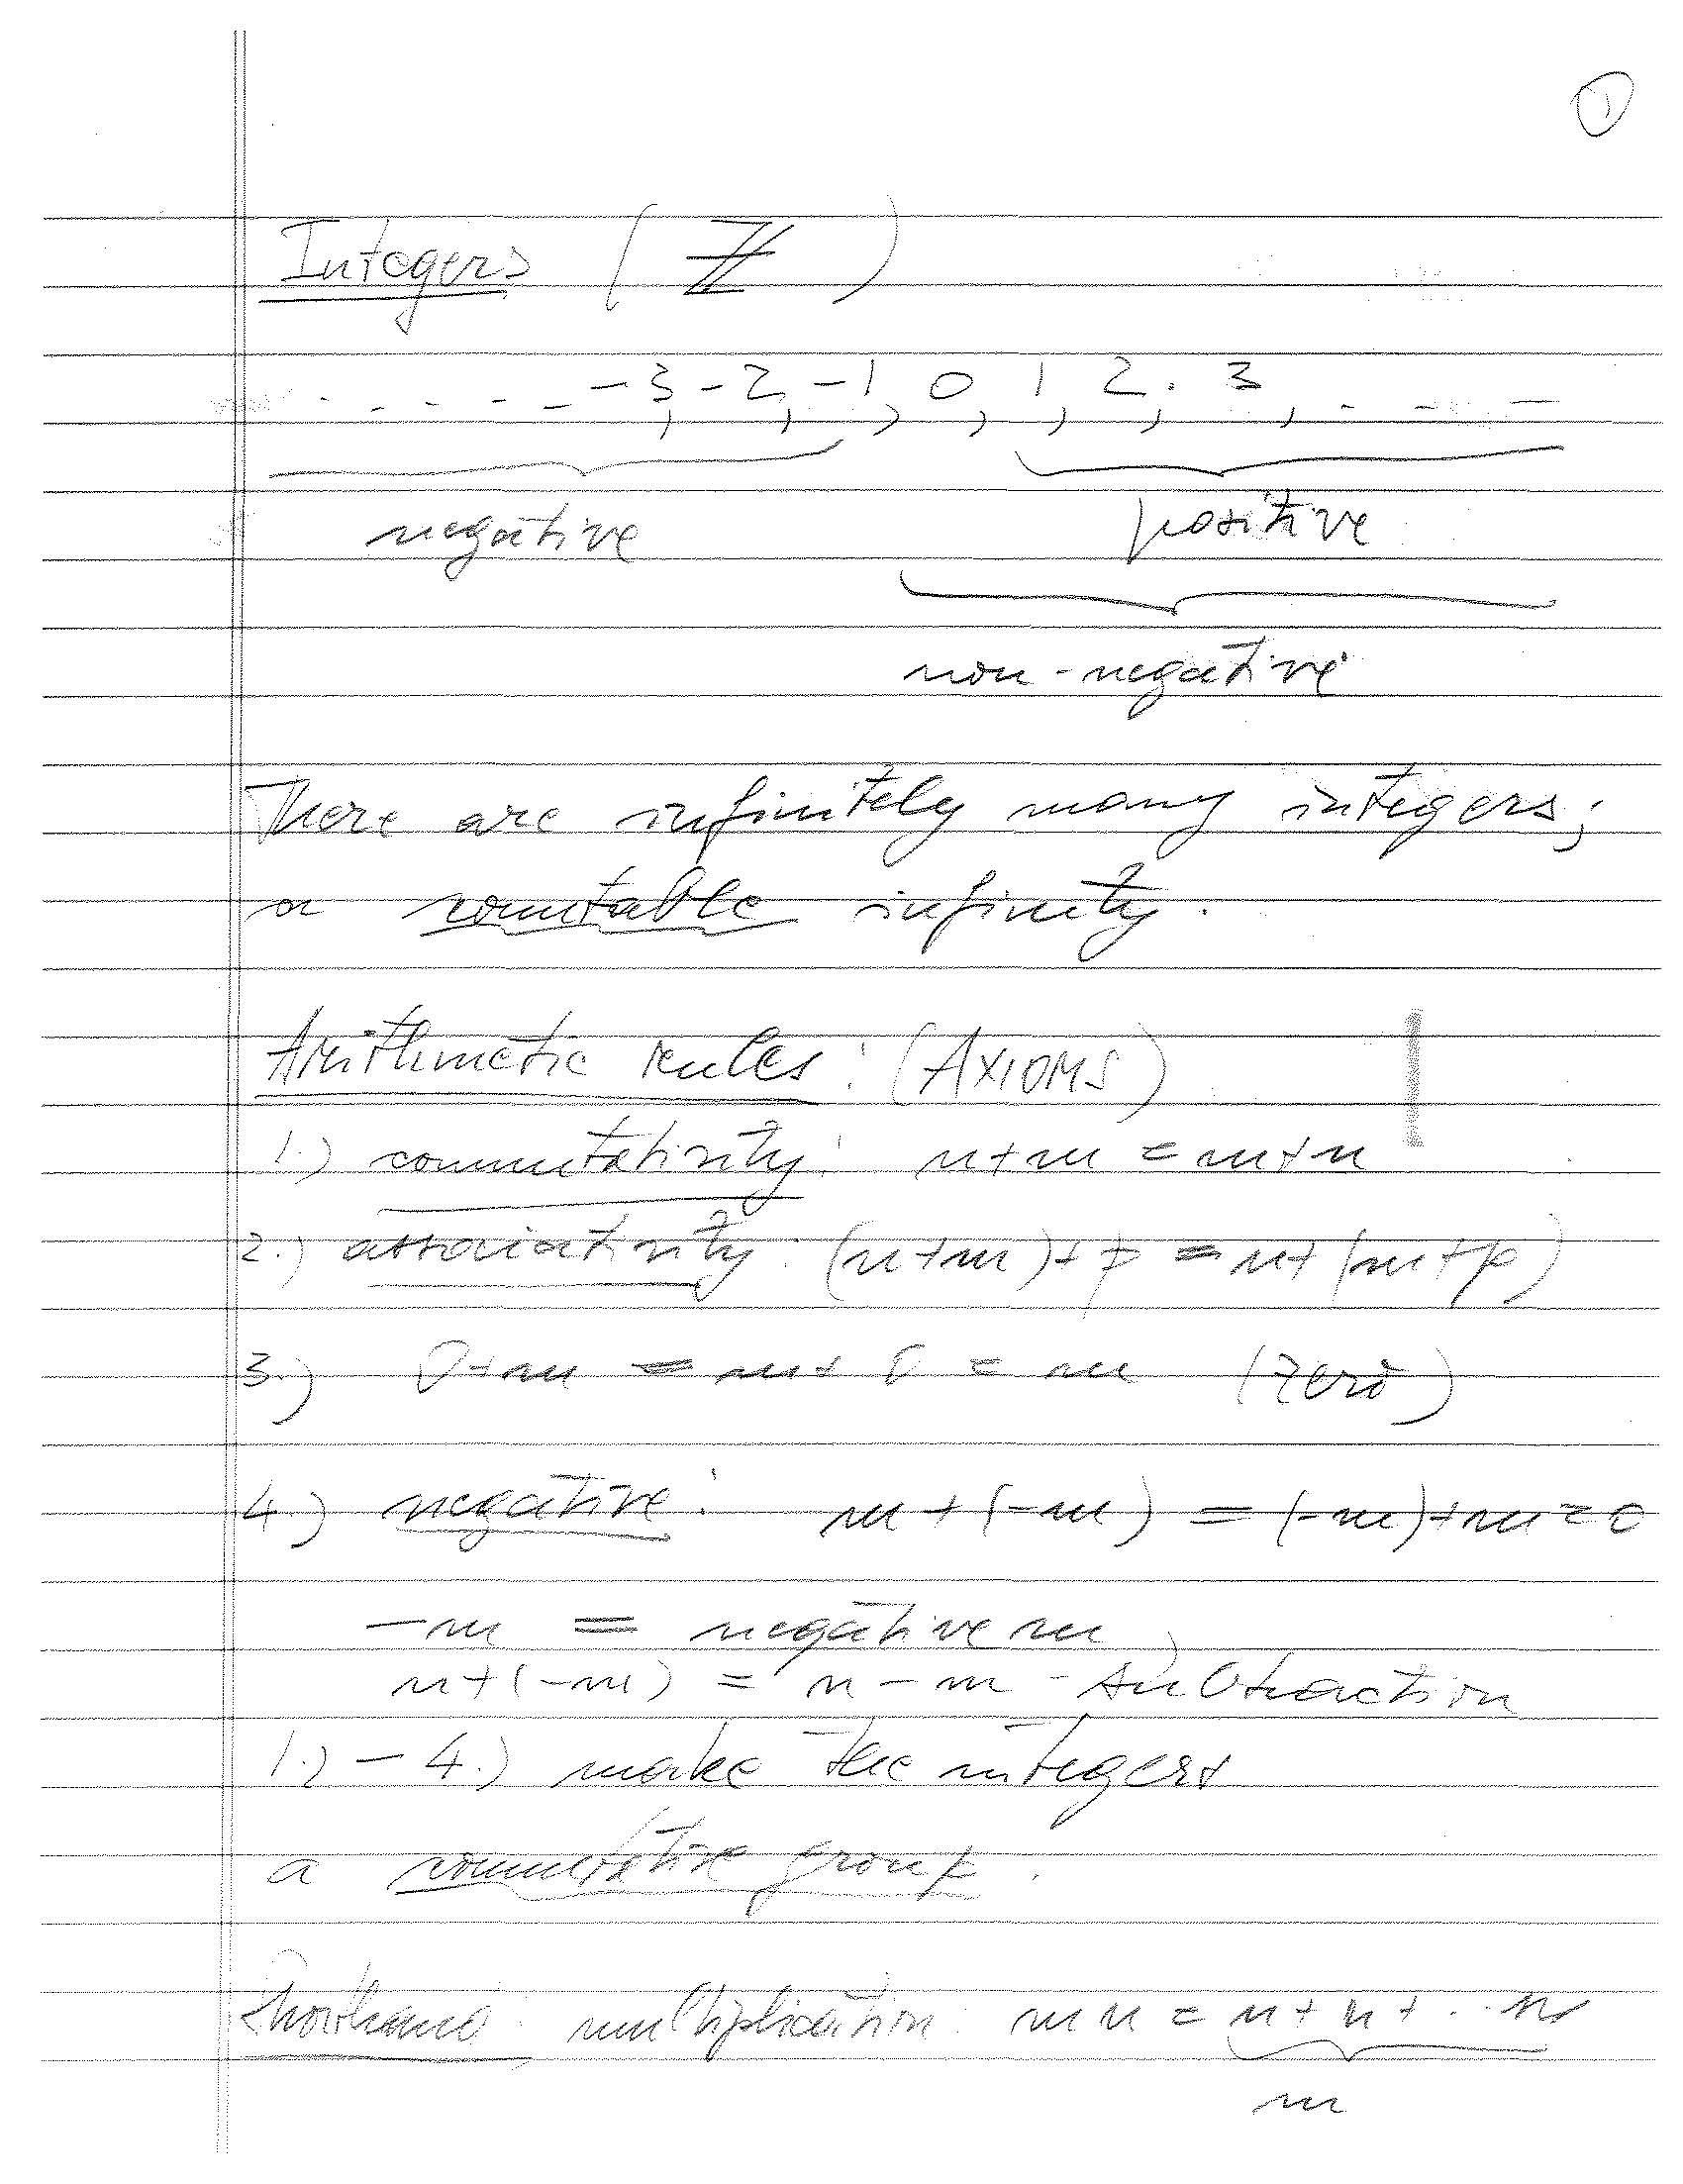 1
Integers (ℤ)
. - - - - -3, -2, -1, 0, 1, 2, 3, - - -
negative positive
non-negative
There are infinitely many integers;
a countable infinity.
Arithmetic rules: (AXIOMS)
1.) commutativity: n+m = m+n
2.) associativity: (n+m)+p = n+(m+p)
3.) 0+m = m+0 = m (zero)
4.) negative: m+(-m) = (-m)+m=0
-m = negative m
n+(-m) = n-m - subtraction
1.) - 4.) make the integers
a commutative group.
Shorthand: multiplication: mn = n+n+..n
m